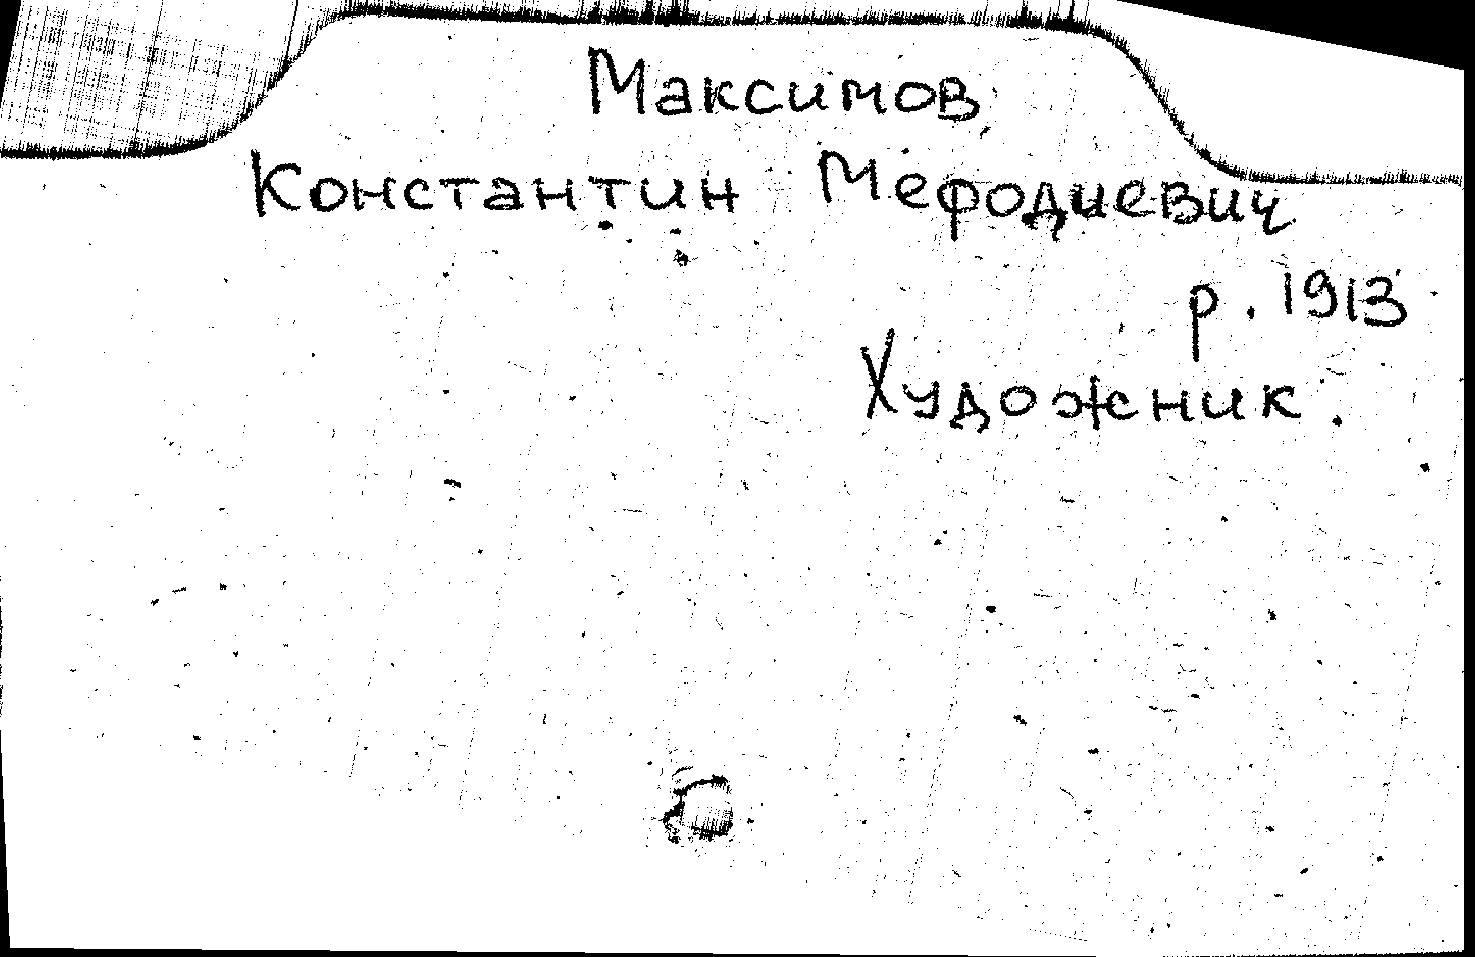 Максимов
Константин Мефодиевич
р. 1913
Художник.